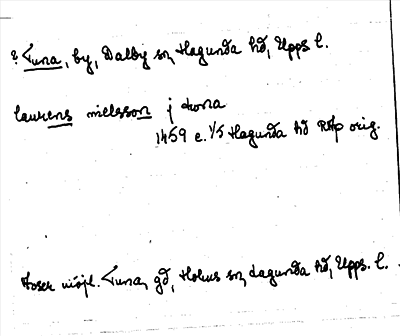 ? Tuna, by, Dalby sn, Hagunda hd, Upps l.
laurens nielsson j tona
1459 e. 1/5 Hagunda hd RAp orig.
Avser möjl. Tuna, gd, Holms sn, Lagunda hd, Upps. l.